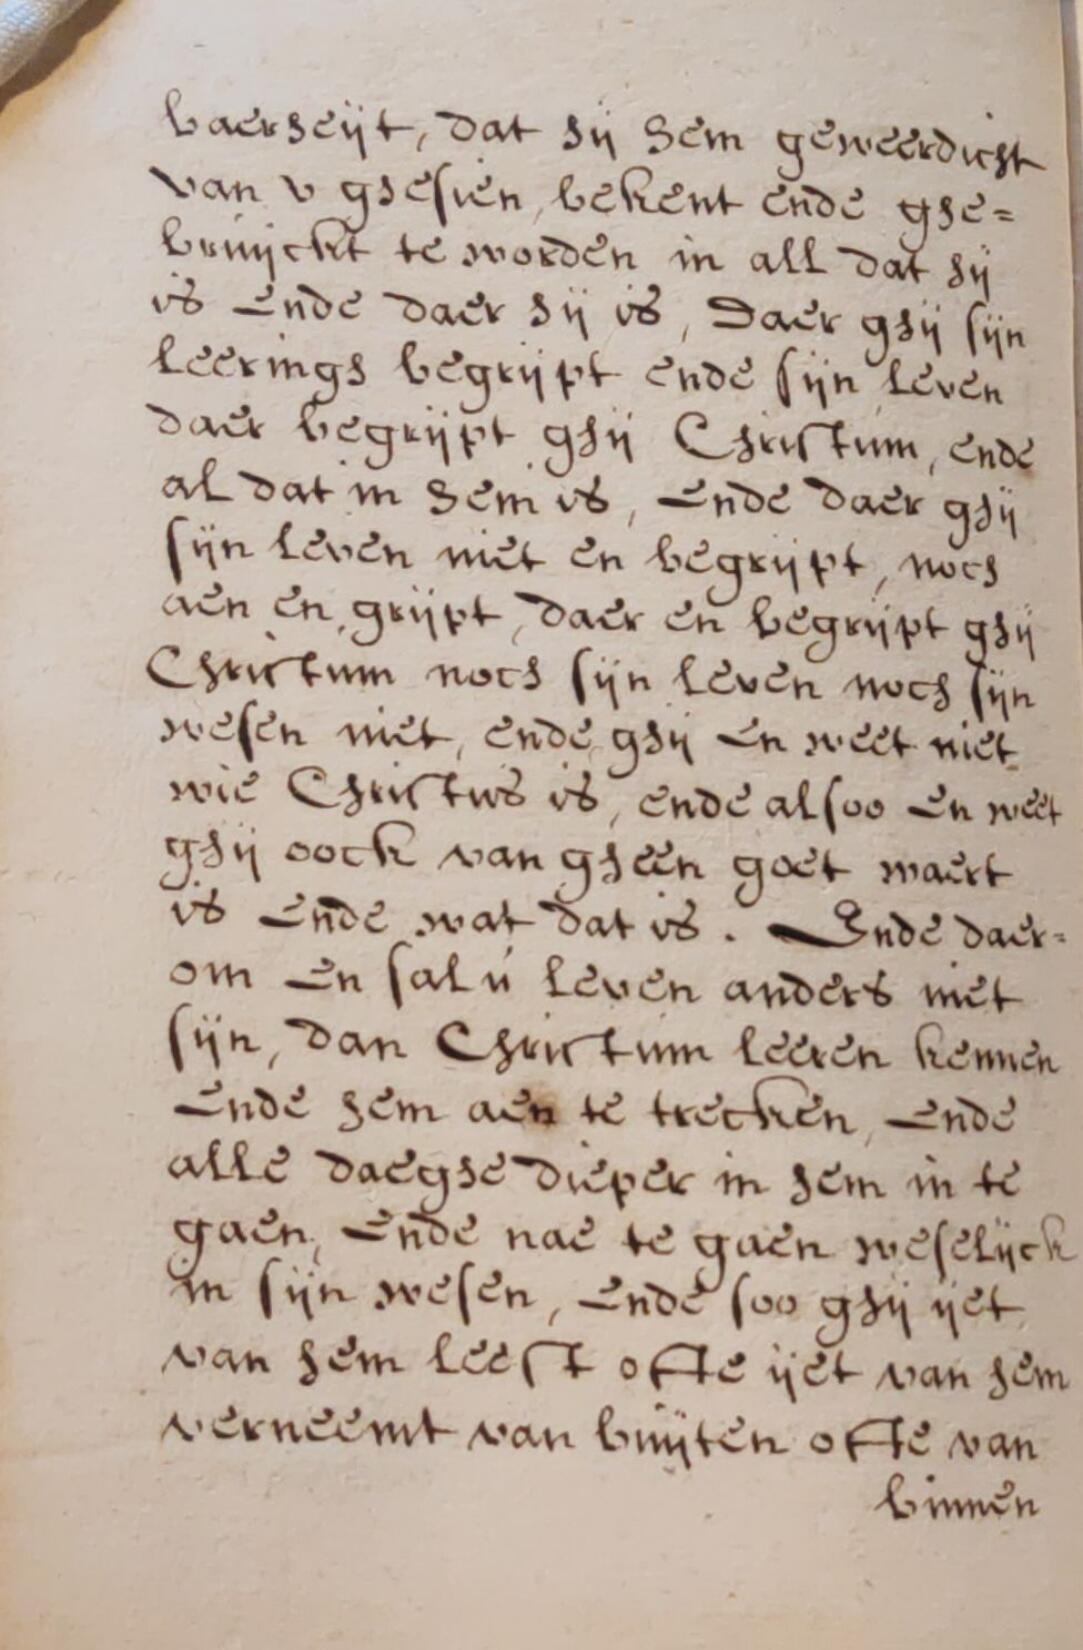 baerheijt, dat hij hem geweerdicht
van v ghesien, bekent ende ghe=
bruijckt te worden in all dat hij
is ende daer hij is, Daer ghij sijn
leerings begrijpt ende sijn leven
daer begrijpt ghij Christum, ende
al dat in hem is, ende daer ghij
sijn leven niet en begrijpt, noch
aen en grijpt, daer en begrijpt ghij
Christum noch sijn leven noch sijn
wesen niet, ende ghij en weet niet
wie Christus is, ende alsoo en weet
ghij oock van gheen goet waert
is ende wat dat is. Ende daer=
om en sal ú leven anders niet
sijn, dan Christum leeren kennen
ende hem aen te trecken, ende
alle daeghe dieper in hem in te
gaen, ende nae te gaen weselijck
in sijn wesen, ende soo ghij ijet
van hem leest ofte ijet van hem
verneemt van buijten ofte van
binnen